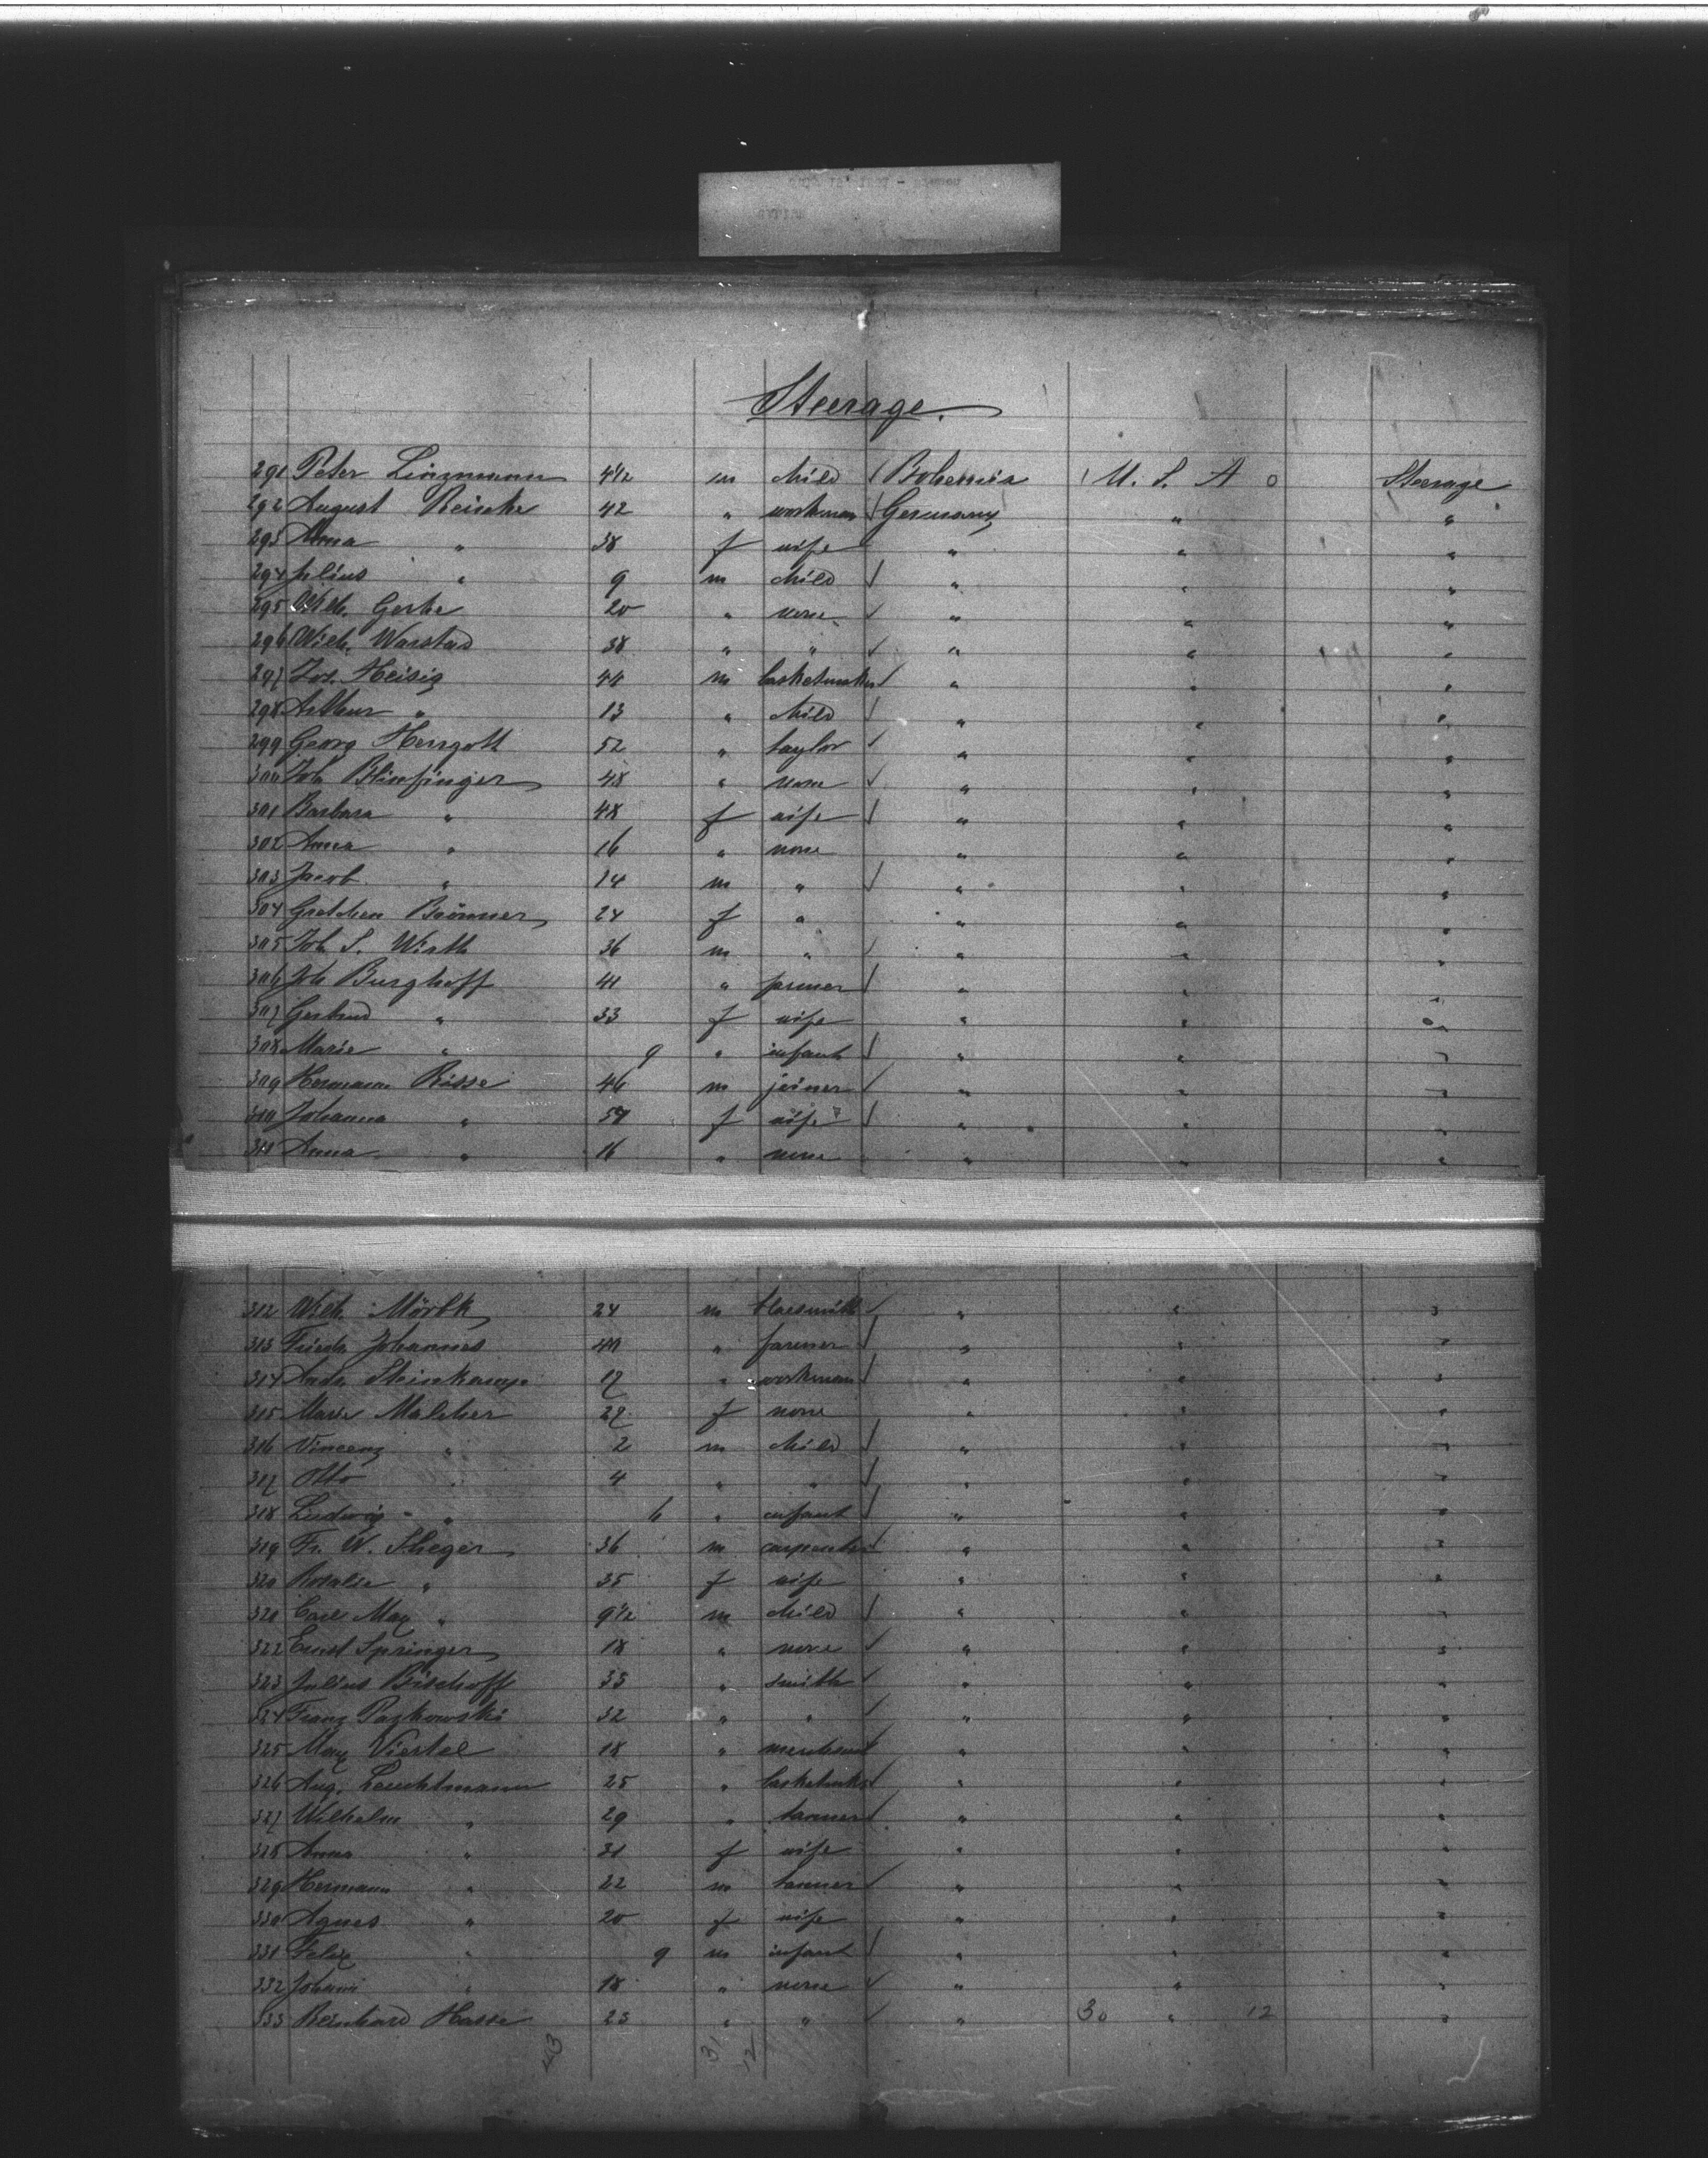 Steerage.
291 Peter Linzmann 4 1/2 m child Bohemia U. S. A Steerage
292 August Reinke 42 " workman Germany " "
293 Anna " 38 f wife " " "
294 Julius " 9 m child " " "
295 Wilh. Gerke 20 " none " " "
296 Wilh. Warstad 38 " " " " "
297 Jos. Heisig 44 m basketmaker " " "
298 Arthur " 13 " child " " "
299 Georg Hergott 52 " taylor " " "
300 Joh 48 " none " " "
301 Barbara " 48 f wife " " "
302 Anna " 16 " none " " "
303 Jacob " 14 m " " " "
304 Gretchen Brönner 24 f " " " "
305 Joh S. Wirth 36 m " " " "
306 Joh Burghoff 41 " farmer " " "
307 Gertrud " 33 f wife " " "
308 Marie " 9 " infant " " "
309 Hermann Risse 46 m joiner " " "
310 Johanna " 54 f wife " " "
311 Anna " 16 " none " " "
312 Wilh. 24 m " " "
313 Friedr Johannes " farmer " " "
314 Steinkamp 17 " workman " " "
315 Marie Malcher 27 f none " " "
316 Vincenz " 2 m child " " "
317 Otto " 4 " " " " "
318 Ludwig " 6 " infant " " "
319 Fr. W. 36 m carpenter " " "
320 Rosalie " 35 f wife " " "
321 Carl Max " 9 1/2 m child " " "
322 Ernst Springer 18 " none " " "
323 Julius Bischoff 33 " smith " " "
324 Franz Pazkowski 32 " " " " "
325 Max Viertel 18 " merchant " " "
326 Aug. Leuchtmann 25 " basketmaker " " "
327 Wilhelm " 29 " tanner " " "
328 Anna " 31 f wife " " "
329 Hermann " 22 m tanner " " "
330 Agnes " 20 f wife " " "
331 Felix " 9 m infant " " "
332 Johann " 18 " none " " "
333 Reinhard Hasse 23 " " " 30 " 12 "
43 31 12